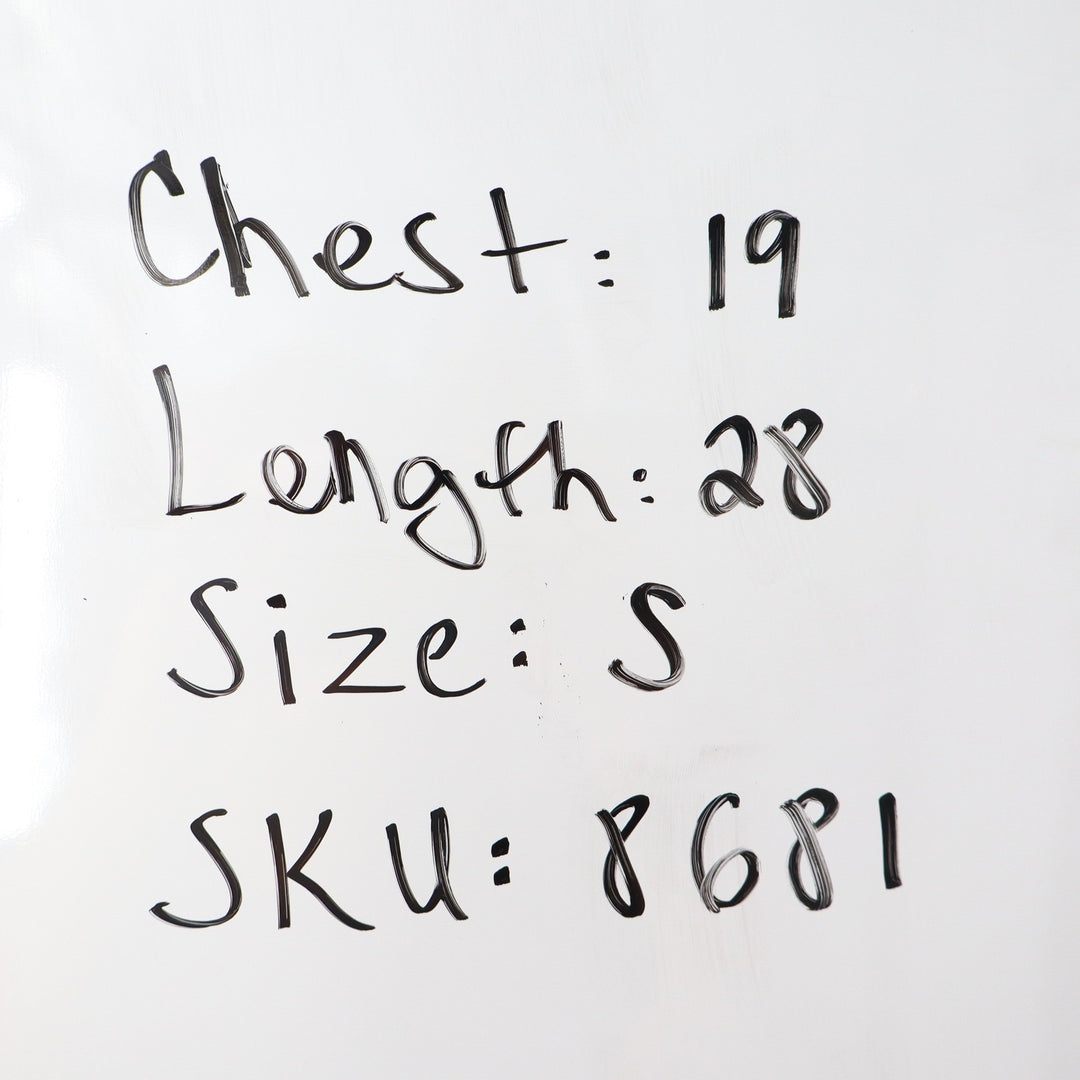 Chest: 19
Length: 28
Size: S
SKU: 8681